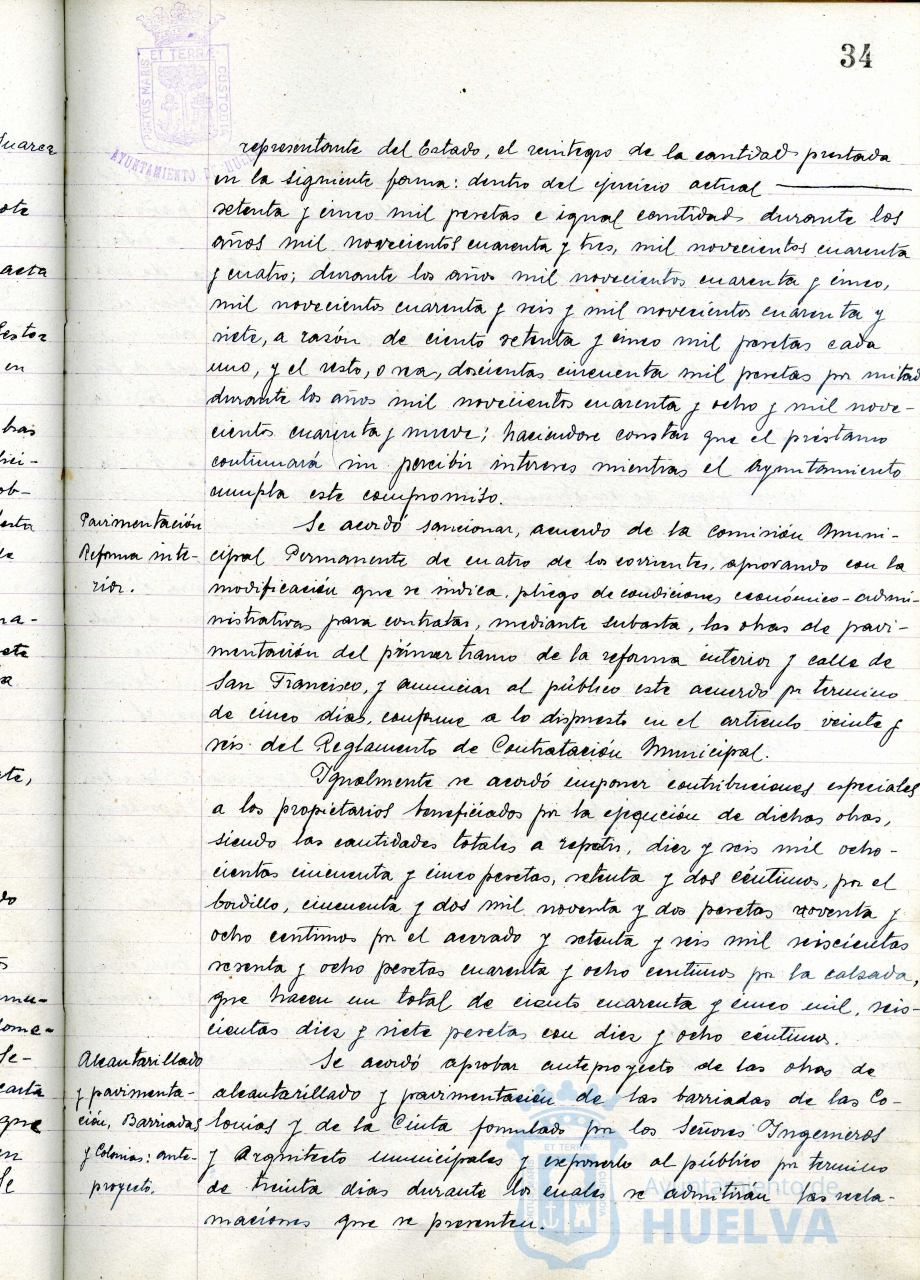 34
PORTUS MARIS ET TERRAE CUSTODIA
AYUNTAMIENTO DE HUELVA
representante del Estado, el reintegro de la cantidad prestada
en la siguiente forma: dentro del ejercicio actual
setenta y cinco mil pesetas e igual cantidad durante los
años mil novecientos cuarenta y tres, mil novecientos cuarenta
y cuatro; durante los años mil novecientos cuarenta y cinco,
mil novecientos cuarenta y seis y mil novecientos cuarenta y
siete, a rasón de ciento setenta y cinco mil pesetas cada
uno, y el resto, o sea, doscientas cincuenta mil pesetas por mitad
durante los años mil novecientos cuarenta y ocho y mil nove-
cientos cuarenta y nueve; haciendose constar que el préstamo
continuará sin percibir intereses mientras el Ayuntamiento
cumpla este compromiso.
Pavimentación
Reforma inte-
rior.
Se acordó sancionar, acuerdo de la comisión Muni-
cipal Permanente de cuatro de los corrientes, aprovando con la
modificación que se indica, pliego de condiciones económico-admi-
nistrativas para contratar, mediante subasta, las obras de pavi-
mentación del primer tramo de la reforma interior y calle de
San Francisco, y anunciar al público este acuerdo por termino
de cinco dias, conforme a lo dispuesto en el articulo veinte y
seis del Reglamento de Contratación Municipal.
Igualmente se acordó imponer contribuciones especiales
a los propietarios beneficiados por la ejecución de dichas obras,
siendo las cantidades totales a repartir, diez y seis mil ocho-
cientas cincuenta y cinco pesetas, setenta y dos céntimos, por el
bordillo, cincuenta y dos mil noventa y dos pesetas noventa y
ocho centimos por el acerado y setenta y seis mil seiscientas
sesenta y ocho pesetas cuarenta y ocho centimos por la calzada,
que hacen un total de ciento cuarenta y cinco mil, seis-
cientas diez y siete pesetas con diez y ocho céntimos.
Alcantarillado
y pavimenta-
ción, Barriadas
y Colonias: ante-
proyecto.
Se acordó aprobar anteproyecto de las obras de
alcantarillado y pavimentación de las barriadas de las Co-
lonias y de la Cinta formulado por los Señores Ingenieros
y Arquitecto municipales y exponerlo al público por termino
de treinta dias durante los cuales se admitirán las recla-
maciones que se presenten.
Ayuntamiento de
HUELVA